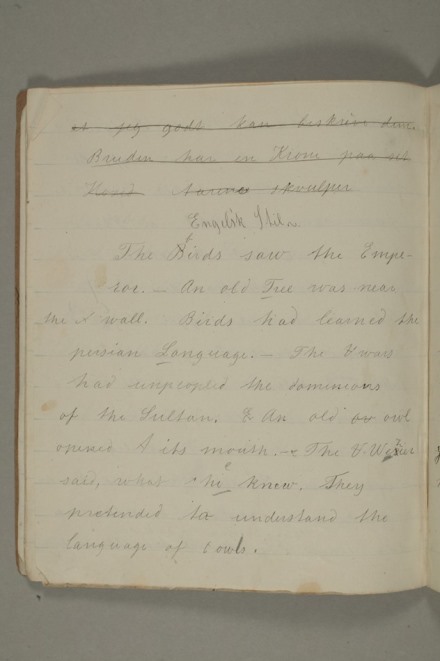 at jeg godt kan beskrive dem.
Bruden har en Krone paa sit
Hoved Aarene skvulper
Engelsk Stil.
The Birds saw the Empe-
ror. — An old Tree was near
the wall. Birds had learned the
persian Language. — The Wars
had unpeopled the dominions
of the Sultan. An old owl
opened its mouth. — The Vizier
said, what he knew. They
pretended to understand the
language of owls.